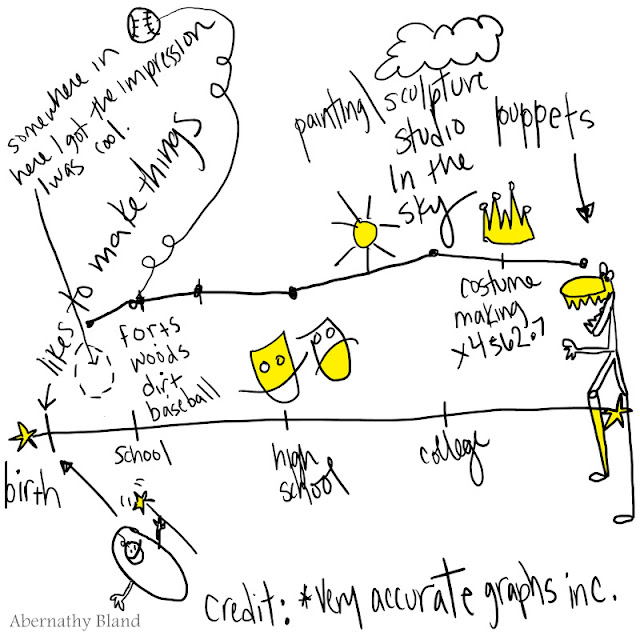 somewhere in
here I got the impression
I was cool.
likes to make things
painting/sculpture
studio
in the
sky
puppets
forts
woods
dirt
baseball
costume
making
x4562.7
birth
school
high
school
college
credit: *very accurate graphs inc.
Abernathy Bland